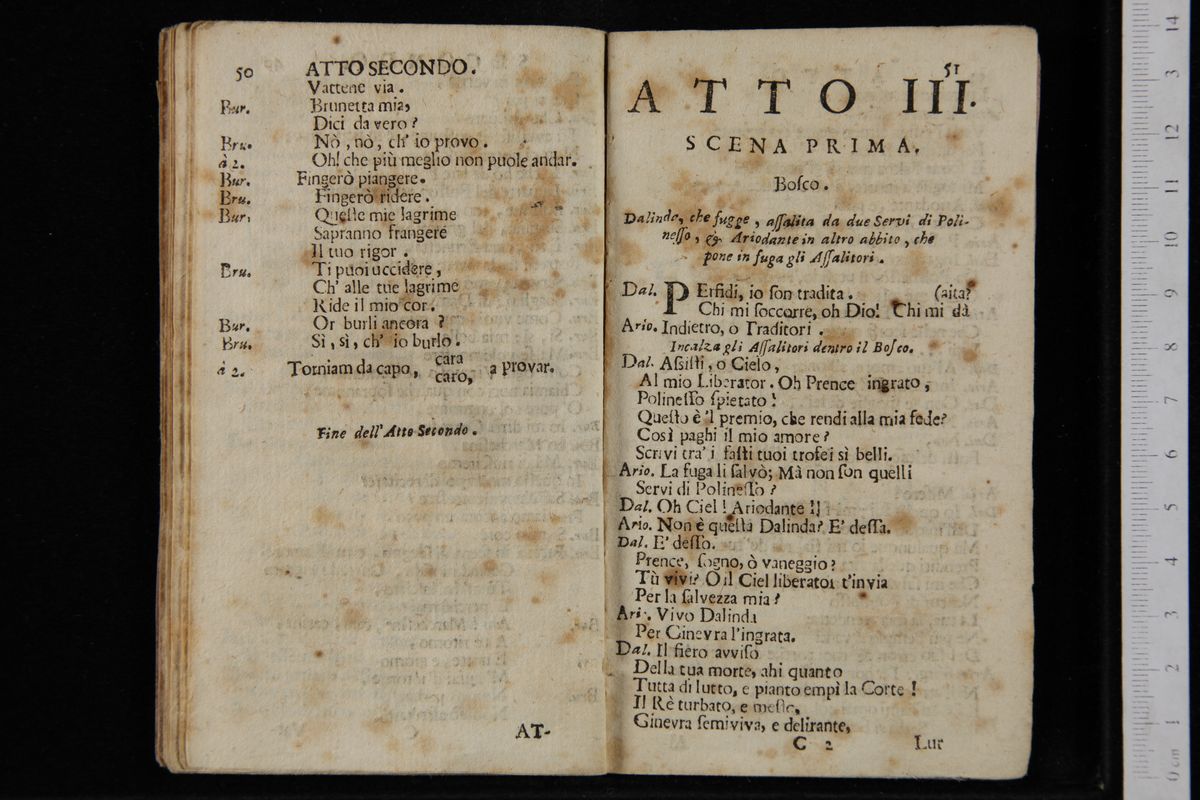 50 ATTO SECONDO.
Vattene via.
Bur. Brunetta mia,
Dici da vero?
Bru. Nò, nò, ch' io provo.
à 2. Oh! che più meglio non puole andar.
Bur. Fingerò piangere.
Bru. Fingerò ridere.
Bur. Queſte mie lagrime
Sapranno frangere
Il tuo rigor.
Bru. Ti puoi uccidere,
Ch' alle tue lagrime
Ride il mio cor.
Bur. Or burli ancora?
Bru. Sì, sì, ch' io burlo.
à 2. Torniam da capo, cara
caro, a provar.
Fine dell' Atto Secondo.
AT-
51
ATTO III.
SCENA PRIMA.
Boſco.
Dalinda, che fugge, aſſalita da due Servi di Poli-
neſſo, & Ariodante in altro abbito, che
pone in fuga gli Aſſalitori.
Dal. PErfidi, io ſon tradita. (aita?
Chi mi ſoccorre, oh Dio! Chi mi dà
Ario. Indietro, o Traditori.
Incalza gli Aſſalitori dentro il Boſco.
Dal. Aſsiſti, o Cielo,
Al mio Liberator. Oh Prence ingrato,
Polineſſo ſpietato!
Queſto è 'l premio, che rendi alla mia fede?
Così paghi il mio amore?
Scrivi tra' i faſti tuoi trofei sì belli.
Ario. La fuga li ſalvò; Mà non ſon quelli
Servi di Polineſſo?
Dal. Oh Ciel! Ariodante!!
Ario. Non è queſta Dalinda? E' deſſa.
Dal. E' deſſo.
Prence, ſogno, ò vaneggio?
Tù vivi? O il Ciel liberator t'invia
Per la ſalvezza mia?
Ario. Vivo Dalinda
Per Ginevra l'ingrata.
Dal. Il fiero avviſo
Della tua morte, ahi quanto
Tutta di lutto, e pianto empì la Corte!
Il Rè turbato, e meſto,
Ginevra ſemiviva, e delirante,
C 2 Lur